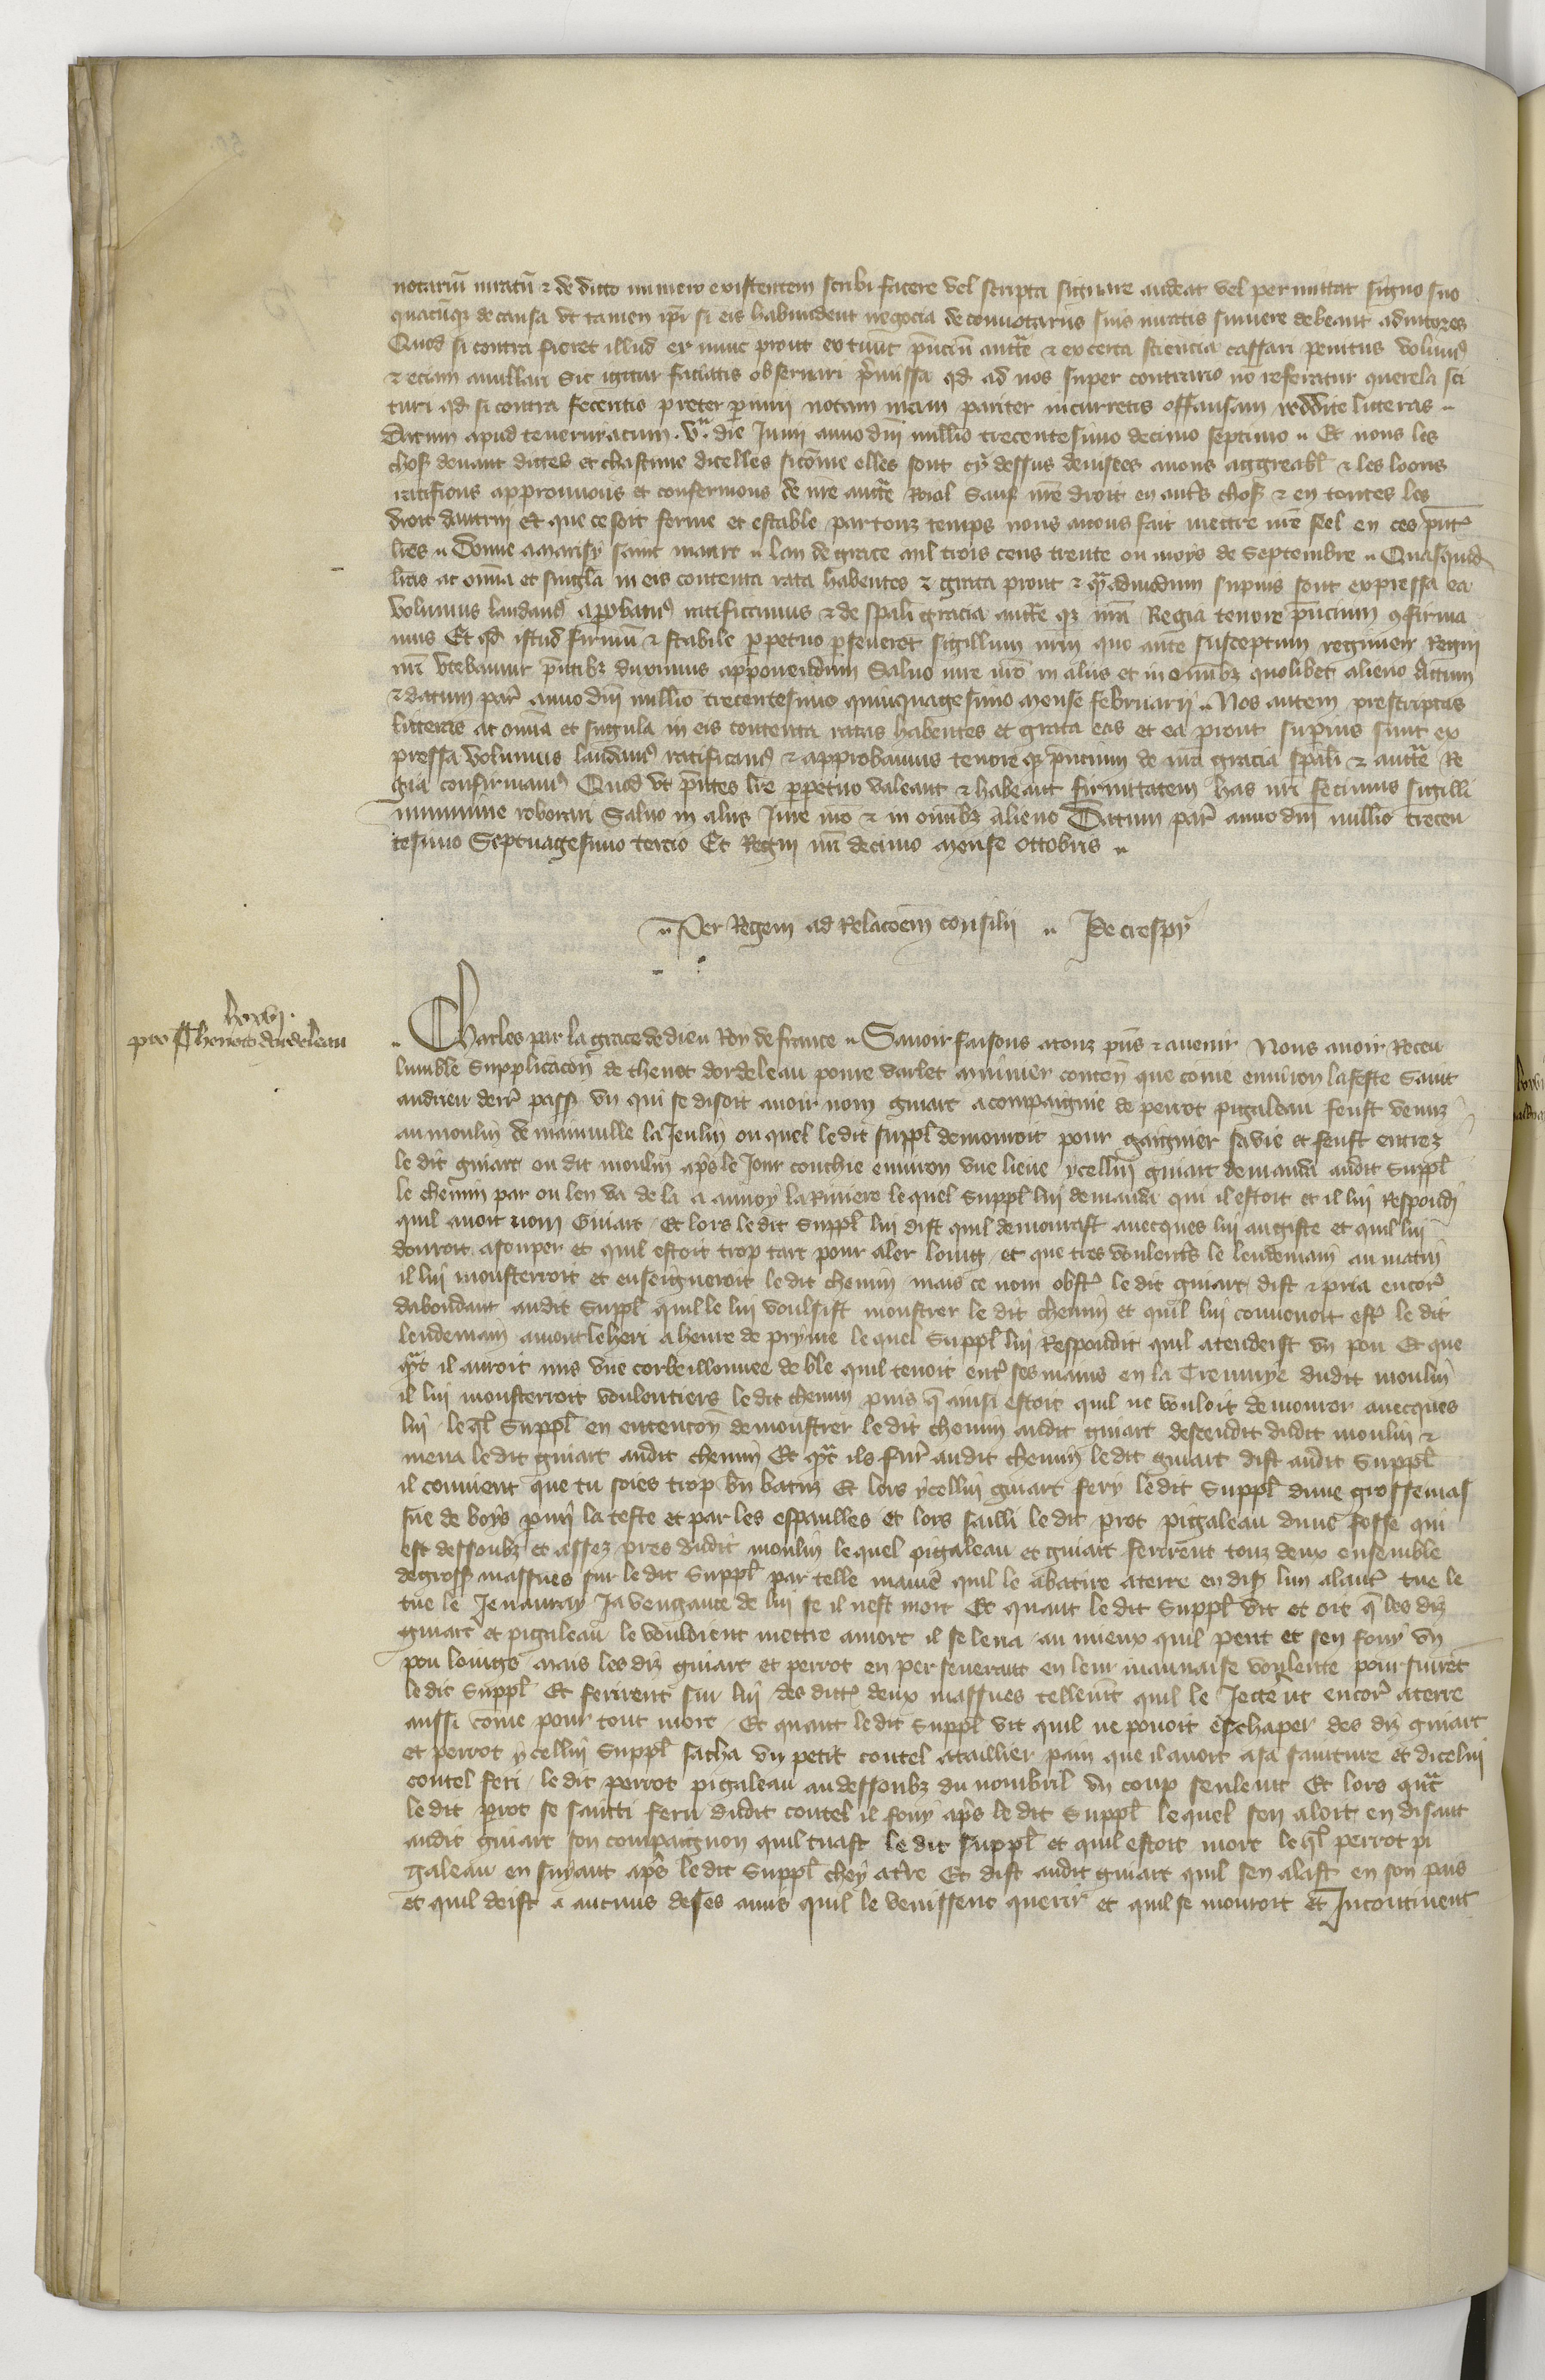 notariu iuratu & de dicto numero existentem scribi facere vel scripta signare audeat vel permittat signo suo
quacuqz de causa vt tamen ipi si eis habundent negocia de connotariis suis iuratis sumere debeant adiutores
Quod si contra fieret illud ex nunc prout ex tunc pnciu aucte & ex certa sciencia cassari penitus volum9
& eciam anullari Sic igitur faciatis obseruari pmissa qd ad nos super contrario no referatur querela sci
turi qd si contra feceritis preter periurii notam nram pariter incurretis offansam reddite litteras
Datum apud
die Junii anno dni millio trecentesimo decimo septimo Et nous les
choses deuant dictes et chascune dicelles sicome elles sont cy dessus deuisees auons aggreabl & les loons
ratifions approuuons et confermons de nre aucte Roial Sauf nre droit en autrs choses & en toutes les
droit dautruy Et que ce soit ferme et estable par touz temps nous auons fait mettre nre seel en ces pnt
lres Donne
saint
lan de grace mil trois cens trente ou moys de Septembre Quasquid
lras ac omia et singla in eis contenta rata habentes & grata prout & qadmodum supius sont expressa ea
volumus laudam9 approbam9 ratificamus & de spali gracia aucte qz nra Regia tenore pncium 9firma
mus Et qd istud firmu & stabile ppetuo pseueret sigillum nrm quo ante susceptum regimen Regni
nri vtebamur pntibz duximus apponendum Saluo iure nro in aliis et in omibz quolibet alieno Actum
& datum par anno dni millio trecentesimo quinquagesimo mense februarii Nos autem prescriptas
litteras ac omia et singula in eis contenta ratas habentes et grata eas et ea prout supius sunt ex
pressa volumus laudam9 ratificam9 & approbamus tenore qz pncium de nra gracia spali & aucte Re
gia confirmam9 Quod vt pntes lre ppetuo valeant & habeant firmitatem has nri fecimus sigilli
munimine roborari Saluo in aliis Jure nro & in omibz alieno Datum par anno dni millio trecen
tesimo Septuagesimo tercio Et Regni nri decimo mense octobris
Per Regem ad Relacoem consilii J de crespy
lxxvi
pro Thenoto dordeleau
Charles par la grace de dieu Roy de france Sauoir faisons a touz pns & auenir Nous auoir Receu
lumble supplicacon de thenot dordeleau poure varlet munier conten que come enuiron la feste saint
andrieu derr passe vn qui se disoit auoir nom guiart acompaignie de perrot pigaleau feust venuz
au moulin de mainuille la Jeulin ou quel le dit suppl demouroit pour gaignier sa vie et feust entrez
le dit guiart ou dit moulin aps le Jour couchie enuiron vne lieue ycellui guiart demanda audit suppl
le chemin par ou len va de la a aunoy la Riuiere le quel suppl lui demanda qui il estoit et il lui Respondi
quil auoit nom Guiart Et lors le dit suppl lui dist quil demourast auecques lui au giste et quil lui
donroit a souper et quil estoit trop tart pour aler loing et que tres voulentrs le lendemain au matin
il lui monsterroit et enseigneroit le dit chemin mais ce nom obst le dit guiart dist & pria encor
dabondant audit suppl quil le lui voulsist monstrer le dit chemin et quil lui conuenoit estr le dit
lendemain a montleheri a heure de pryme le quel suppl lui Respondit quil atendeist vn pou Et que
qat il auroit mis vne corbeillonnee de ble quil tenoit entr ses mains en la Tremuye dudit moulin
il lui monsterroit voulentiers le dit chemin puis q ainsi estoit quil ne vouloit demourer auecques
lui le ql suppl en entencon de monstrer le dit chemin audit guiart descendit dudit moulin &
mena le dit guiart audit chemin Et qat ils furt audit chemin le dit guiart dist audit suppl
il conuient que tu soies trop bn batuz Et lors ycellui guiart fery le dit suppl dune grosse mas
sue de boys pmy la teste et par les espaulles et lors failli le dit prot pigaleau dune fosse qui
est dessoubz et assez pres dudit moulin le quel pigaleau et guiart ferirent touz deux ensemble
de grosses massues sur le dit suppl par telle manie quil le abatire a terre en dis lun a lautr tue le
tue le Je nauray Ja vengance de lui se il nest mort Et quant le dit suppl vit et oit q les diz
guiart et pigaleau le vouloient mettre a mort il se leua au mieux quil peut et sen fouy vn
pou loingz mais les diz guiart et perrot en perseuerant en leur mauuaise voulente poursuiret
le dit suppl Et ferirent sur lui des dittes deux massues tellemt quil le Jectert encor a terre
aussi come pour tout mort Et quant le dit suppl vit quil ne pouoit eschaper des diz guiart
et perrot ycellui suppl sacha vn petit coutel a taillier pain que il auoit a sa sainture et dicelui
coutel feri le dit perrot pigaleau au dessoubz du nombril vn coup seulemt Et lors quat
le dit prot se santti feru dudit coutel il fouy aps le dit suppl le quel sen aloit en disant
audit guiart son compaignon quil tuast le dit suppl et quil estoit mort le ql perrot pi
galeau en suiuant aps le dit suppl chey a tre Et dist audit guiart quil sen alast en son pais
et quil deist a aucuns de ses amis quil le venissent querir et quil se mouroit et Incontinent